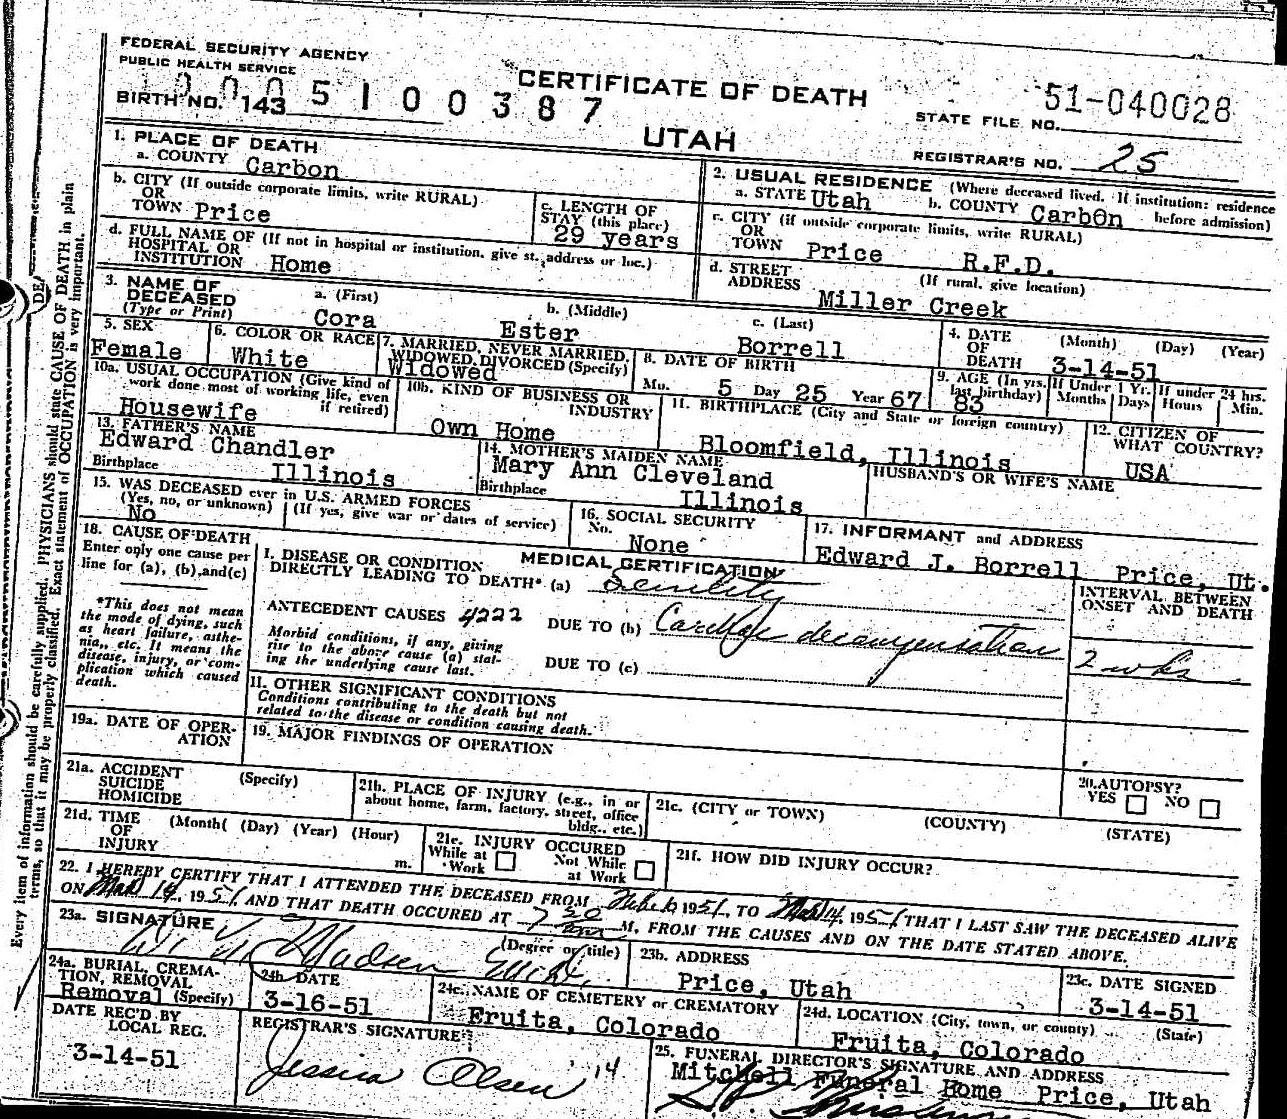 FEDERAL SECURITY AGENCY
PUBLIC HEALTH SERVICE
CERTIFICATE OF DEATH
UTAH
0005100387
BIRTH NO. 143
51-040028
STATE FILE NO.
REGISTRAR'S NO. 25
1. PLACE OF DEATH
a. COUNTY Carbon
b. CITY (If outside corporate limits, write RURAL)
OR
TOWN Price
c. LENGTH OF
STAY (this place)
29 years
d. FULL NAME OF (If not in hospital or institution, give st., address or loc.)
HOSPITAL OR
INSTITUTION Home
2. USUAL RESIDENCE (Where deceased lived. If institution: residence
a. STATE Utah b. COUNTY Carbon before admission)
c. CITY (if outside corporate limits, write RURAL)
OR
TOWN Price R.F.D.
d. STREET (If rural, give location)
ADDRESS Miller Creek
3. NAME OF
DECEASED
(Type or Print)
a. (First) b. (Middle) c. (Last)
Cora Ester Borrell
4. DATE (Month) (Day) (Year)
OF
DEATH 3-14-51
5. SEX
Female
6. COLOR OR RACE
White
7. MARRIED, NEVER MARRIED,
WIDOWED, DIVORCED (Specify)
Widowed
8. DATE OF BIRTH
Mo. 5 Day 25 Year 67
9. AGE (In yrs. last birthday)
83
If Under 1 Yr.
Months Days
If under 24 hrs.
Hours Min.
10a. USUAL OCCUPATION (Give kind of
work done most of working life, even
if retired)
Housewife
10b. KIND OF BUSINESS OR
INDUSTRY
Own Home
11. BIRTHPLACE (City and State or foreign country)
Bloomfield, Illinois
12. CITIZEN OF
WHAT COUNTRY?
USA
13. FATHER'S NAME
Edward Chandler
Birthplace Illinois
14. MOTHER'S MAIDEN NAME
Mary Ann Cleveland
Birthplace Illinois
HUSBAND'S OR WIFE'S NAME
15. WAS DECEASED ever in U.S. ARMED FORCES
(Yes, no, or unknown) (If yes, give war or dates of service)
No
16. SOCIAL SECURITY
No.
None
17. INFORMANT and ADDRESS
Edward J. Borrell Price, Ut.
18. CAUSE OF DEATH
Enter only one cause per
line for (a), (b), and (c)
*This does not mean
the mode of dying, such
as heart failure, asthe-
nia, etc. It means the
disease, injury, or com-
plication which caused
death.
MEDICAL CERTIFICATION
I. DISEASE OR CONDITION
DIRECTLY LEADING TO DEATH* (a) Senility
ANTECEDENT CAUSES 4222
DUE TO (b) Cardiac decompensation
Morbid conditions, if any, giving
rise to the above cause (a) stat-
ing the underlying cause last.
DUE TO (c)
INTERVAL BETWEEN
ONSET AND DEATH
2 wks
11. OTHER SIGNIFICANT CONDITIONS
Conditions contributing to the death but not
related to the disease or condition causing death.
19a. DATE OF OPER-
ATION
19. MAJOR FINDINGS OF OPERATION
20. AUTOPSY?
YES NO
21a. ACCIDENT (Specify)
SUICIDE
HOMICIDE
21b. PLACE OF INJURY (e.g., in or
about home, farm, factory, street, office
bldg., etc.)
21c. (CITY or TOWN) (COUNTY) (STATE)
21d. TIME (Month( (Day) (Year) (Hour)
OF
INJURY m.
21e. INJURY OCCURED
While at Work Not While at Work
21f. HOW DID INJURY OCCUR?
22. I HEREBY CERTIFY THAT I ATTENDED THE DECEASED FROM 1951, TO Mar 14, 1951, THAT I LAST SAW THE DECEASED ALIVE
ON Mar 14, 1951, AND THAT DEATH OCCURED AT 7 30 M, FROM THE CAUSES AND ON THE DATE STATED ABOVE.
23a. SIGNATURE (Degree or title)
Madsen
23b. ADDRESS
Price, Utah
23c. DATE SIGNED
3-14-51
24a. BURIAL, CREMA-
TION, REMOVAL
Removal (Specify)
24b. DATE
3-16-51
24c. NAME OF CEMETERY or CREMATORY
Fruita, Colorado
24d. LOCATION (City, town, or county) (State)
Fruita, Colorado
DATE REC'D BY
LOCAL REG.
3-14-51
REGISTRAR'S SIGNATURE
Jessica Olsen '14
25. FUNERAL DIRECTOR'S SIGNATURE AND ADDRESS
Mitchell Funeral Home Price, Utah
Every item of information should be carefully supplied. PHYSICIANS should state CAUSE OF DEATH in plain
terms, so that it may be properly classified. Exact statement of OCCUPATION is very important.